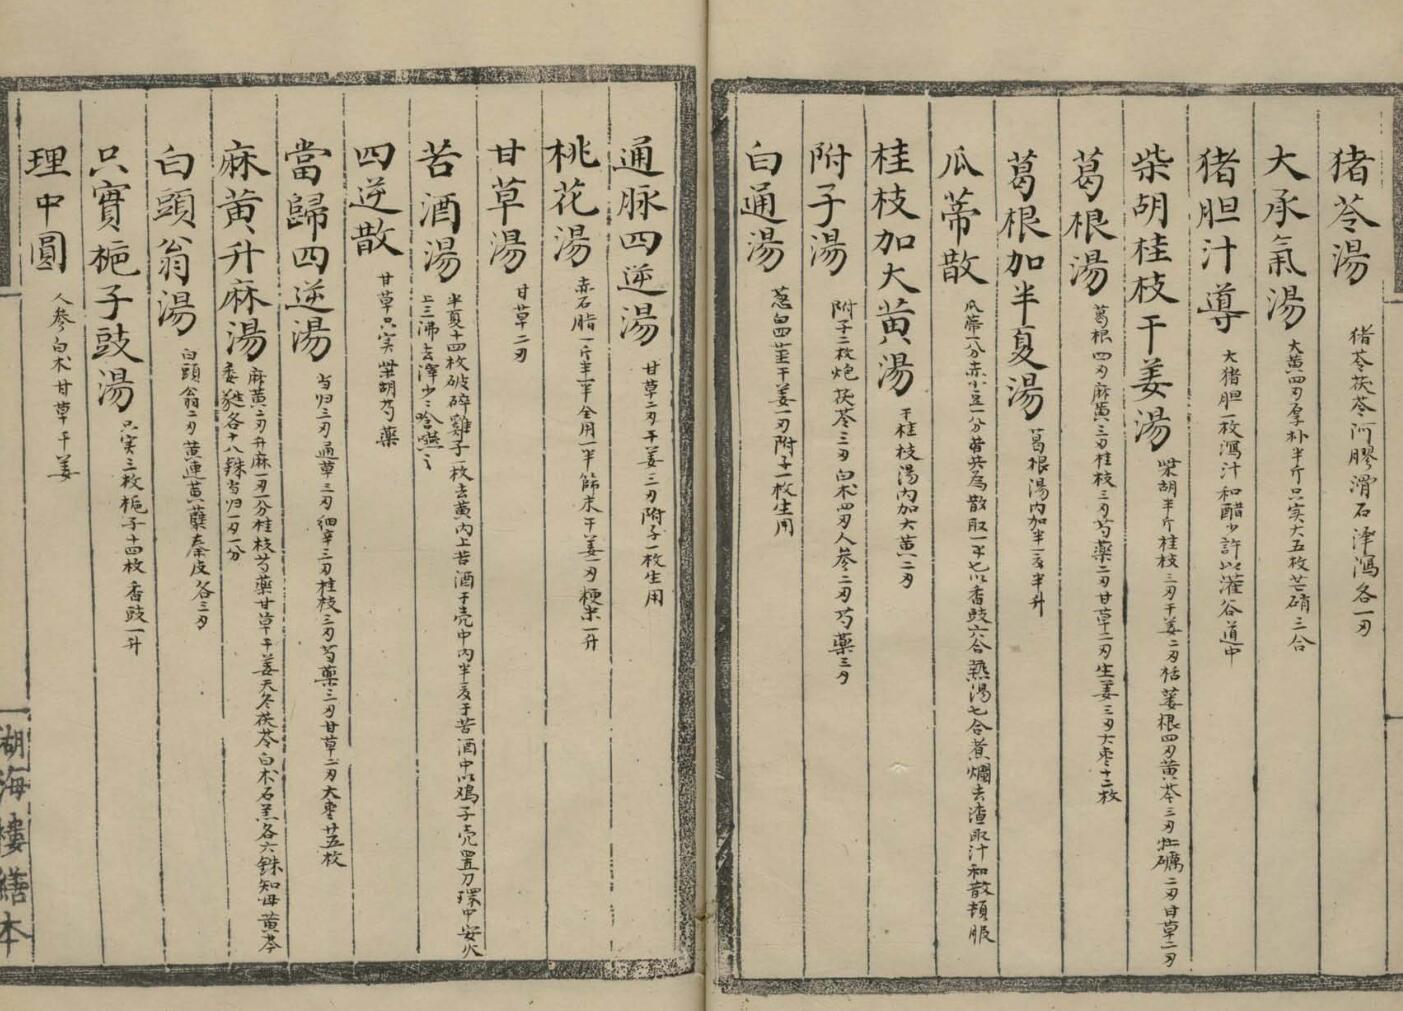 猪苓湯 猪苓茯苓阿膠滑石泽瀉各一刃
大承氣湯 大黄四刃厚朴半斤只实大五枚芒硝三合
猪胆汁導 大猪胆一枚瀉汁和醋少許以灌谷道中
柴胡桂枝干姜湯 柴胡半斤桂枝三刃干姜二刃栝蒌根四刃黄芩三刃牡礪二刃甘草二刃
葛根湯 葛根四刃麻黄三刃桂枝三刃芍藥二刃甘草二刃生姜三刃大枣十二枚
葛根加半夏湯 葛根湯内加半夏半升
瓜蒂散 瓜蒂一分赤小豆一分共為散取一字匕以香豉六合熱湯七合煮爛去渣取汁和散頓服
桂枝加大黄湯 于桂枝湯内加大黄二刃
附子湯 附子二枚炮茯苓三刃白术四刃人參二刃芍藥三刃
白通湯 葱白四茎干姜一刃附子一枚生用
通脉四逆湯 甘草二刃干姜三刃附子一枚生用
桃花湯 赤石脂一斤半一半全用一半篩末干姜一刃粳米一升
甘草湯 甘草二刃
苦酒湯 半夏十四枚破碎雞子一枚去黄内上苦酒于壳中内半夏于苦酒中以鸡子壳置刀環中安火
上三沸去滓少〻唅嚥〻
四逆散 甘草只实柴胡芍藥
當歸四逆湯 当归三刃通草三刃細辛三刃桂枝三刃芍藥三刃甘草二刃大枣廿五枚
麻黄升麻湯 麻黄二刃升麻一刃一分桂枝芍藥甘草干姜天冬茯苓白术石羔各六銖知母黄芩
委蕤各十八銖当归一刃一分
白頭翁湯 白頭翁二刃黄連黄蘗秦皮各三刃
只實梔子豉湯 只实三枚梔子十四枚香豉一升
理中圓 人參白术甘草干姜
湖海樓繕本